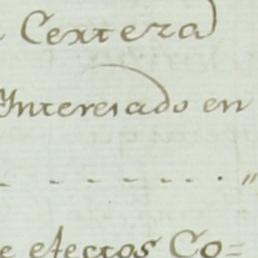 Certera
Interesado en
- - - - - - - . "
e efectos Co=